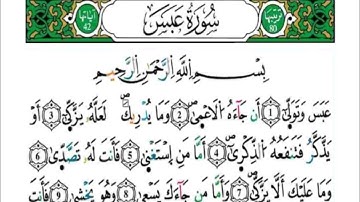 ترتيبها 80 سُورَةُ عَبَسَ آياتها 42
بِسْمِ اللَّهِ الرَّحْمَٰنِ الرَّحِيمِ
عَبَسَ وَتَوَلَّىٰ ﴿1﴾ أَن جَاءَهُ الْأَعْمَىٰ ﴿2﴾ وَمَا يُدْرِيكَ لَعَلَّهُ يَزَّكَّىٰ ﴿3﴾ أَوْ
يَذَّكَّرُ فَتَنفَعَهُ الذِّكْرَىٰ ﴿4﴾ أَمَّا مَنِ اسْتَغْنَىٰ ﴿5﴾ فَأَنتَ لَهُ تَصَدَّىٰ ﴿6﴾
وَمَا عَلَيْكَ أَلَّا يَزَّكَّىٰ ﴿7﴾ وَأَمَّا مَن جَاءَكَ يَسْعَىٰ ﴿8﴾ وَهُوَ يَخْشَىٰ ﴿9﴾ فَأَنتَ